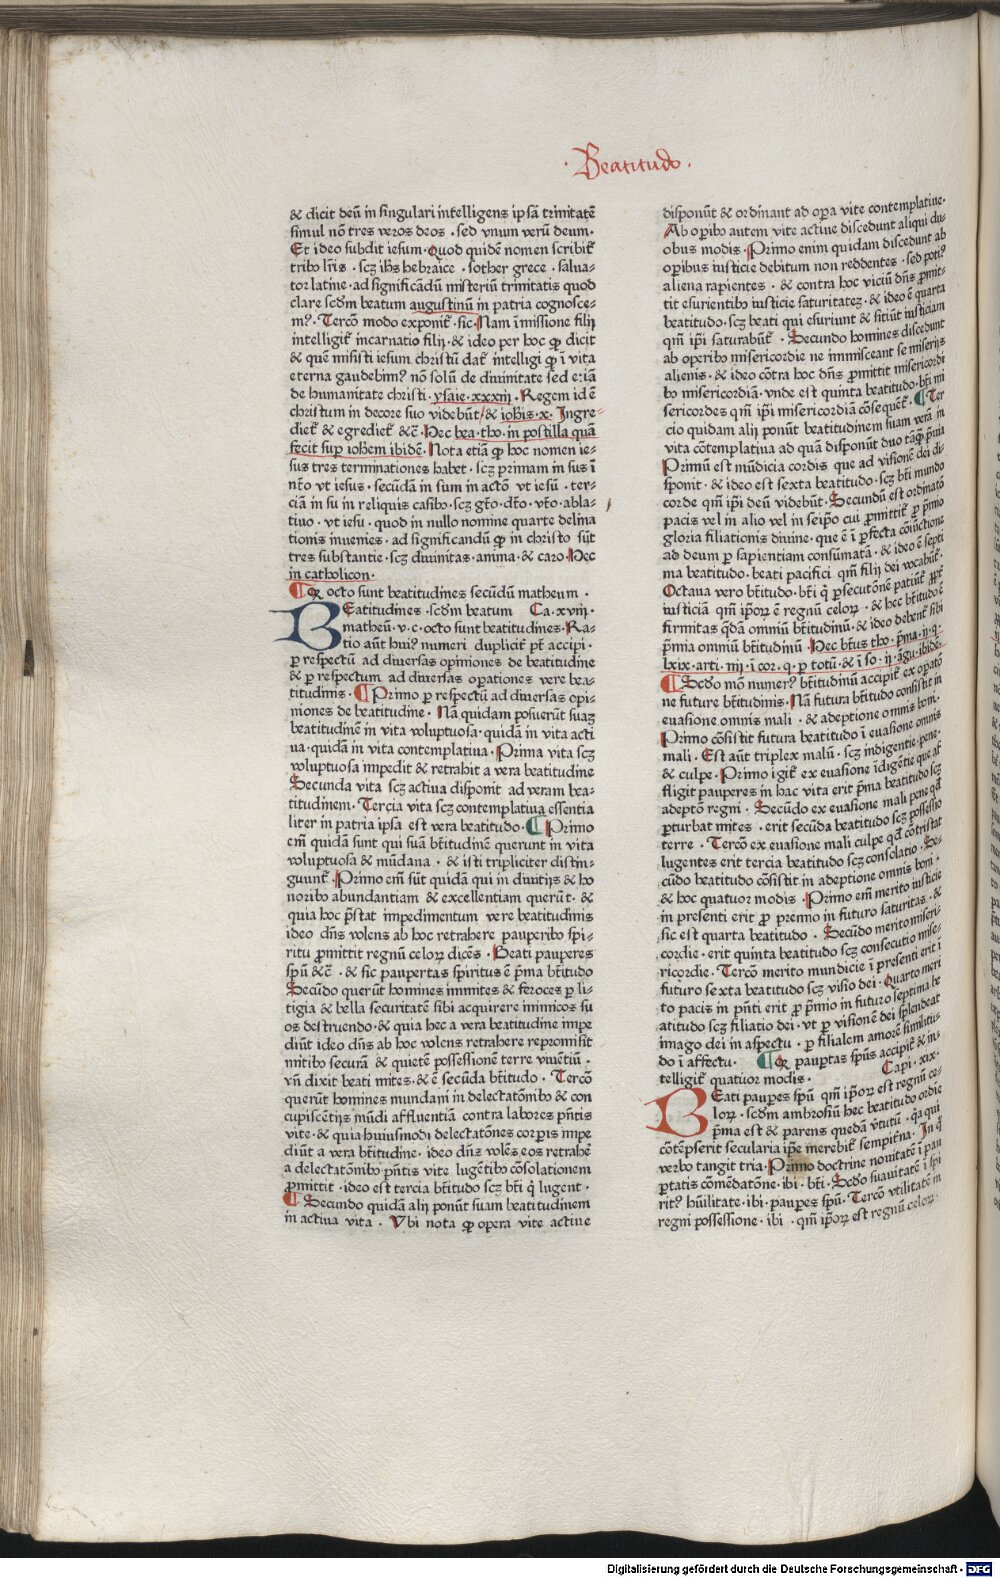 · Beatitudo ·
& dicit deũ in singulari intelligens ipsã trinitatẽ
simul nõ tres veros deos · sed vnum verũ deum ·
Et ideo subdit iesum · Quod quidẽ nomen scribit̃
tribꝰ lr̃is · scꝫ ihs̃ hebraice · sother grece · salua-
tor latine · ad significãdũ misteriũ trinitatis quod
clare scd̃m beatum augustinũ in patria cognosce-
mꝰ · Tercõ modo exponit̃ · sic · Nam ĩ missione filij
intelligit̃ incarnatio filij · & ideo per hoc ꝙ dicit
& quẽ misisti iesum christũ dat̃ intelligi ꝙ ĩ vita
eterna gaudebimꝰ nõ solũ de diuinitate sed eciã
de humanitate christi · ysaie · xxxiij · Regem id ẽ
christum in decore suo videbũt / & ioh̃is · x · Ingre-
diet̃ & egrediet̃ &c̃ · Hec bea · tho · in postilla quã
fecit suꝑ ioh̃em ibidẽ · Nota etiã ꝙ hoc nomen ie-
sus tres terminationes habet · scꝫ primam in sus ĩ
nt̃o vt iesus · secũdã in sum in actõ vt iesũ · ter-
ciã in su in reliquis casibꝰ · scꝫ gt̃o · dt̃o · vt̃o · abla-
tiuo · vt iesu · quod in nullo nomine quarte declina
tionis inuenies · ad significandũ ꝙ in christo sũt
tres substantie · scꝫ diuinitas · anima · & caro · Hec
in catholicon ·
¶ Qꝛ octo sunt beatitudines secũdũ matheum ·
BEatitudines · scd̃m beatum Ca · xviij ·
matheũ · v · c · octo sunt beatitudines · Ra-
tio aũt huiꝰ numeri duplicit̃ pt̃ accipi ·
ꝑ respectũ ad diuersas opiniones de beatitudine
& ꝑ respectum ad diuersas oꝑationes vere bea-
titudinis · ¶ Primo ꝑ respectũ ad diuersas opi-
niones de beatitudine · Nã quidam posuerũt suaꝫ
beatitudinẽ in vita voluptuosa · quidã in vita acti
ua · quidã in vita contemplatiua · Prima vita scꝫ
voluptuosa impedit & retrahit a vera beatitudine
Secunda vita scꝫ actiua disponit ad veram bea-
titudinem · Tercia vita scꝫ contemplatiua essentia
liter in patria ipsa est vera beatitudo · ¶ Primo
em̃ quidã sunt qui suã bt̃itudinẽ querunt in vita
voluptuosa & mũdana · & isti tripliciter distin-
guunt̃ · Primo em̃ sũt quidã qui in diuitijs & ho
noribꝰ abundantiam & excellentiam querũt · &
quia hoc p̃stat impedimentum vere beatitudinis
ideo dñs volens ab hoc retrahere pauperibꝰ spi-
ritu ꝓmittit regnũ celoꝝ dicẽs · Beati pauperes
spũ &c̃ · & sic paupertas spiritus ẽ p̃ma bt̃itudo
Secũdo querũt homines immites & feroces ꝑ li-
tigia & bella securitatẽ sibi acquirere inimicos su
os destruendo · & quia hec a vera beatitudine impe
diũt ideo dñs ab hoc volens retrahere repromisit
mitibꝰ securã & quietẽ possessionẽ terre viuẽtiũ ·
vñ dixit beati mites · & ẽ secũda bt̃itudo · Tercõ
querũt homines mundani in delectatõnibꝰ & con
cupiscẽtijs mũdi affluentiã contra labores pñtis
vite · & quia huiusmodi delectatões corꝑis impe
diũt a vera bt̃itudine · ideo dñs volẽs eos retrahẽ
a delectatõnibꝰ pñtis vite lugẽtibꝰ cõsolationem
ꝓmittit · ideo est tercia bt̃itudo scꝫ bt̃i q̃ lugent ·
¶ Secundo quidã alij ponũt suam beatitudinem
in actiua vita · Vbi nota ꝙ opera vite actiue
disponũt & ordinant ad oꝑa vite contemplatiue ·
Ab oꝑibꝰ autem vite actiue discedunt aliqui du-
obus modis · Primo enim quidam discedunt ab
oꝑibus iusticie debitum non reddentes · sed potiꝰ
aliena rapientes · & contra hoc viciũ dñs ꝓmit-
tit esurientibꝰ iusticie saturitateꝫ · & ideo ẽ quarta
beatitudo · scꝫ beati qui esuriunt & sitiũt iusticiam
qm̃ ip̃i saturabũt̃ · Secundo homines discedunt
ab operibꝰ misericordie ne immisceant se miserijs
alienis · & ideo cõtra hoc dñs ꝓmittit misericordi
bꝰ misericordiã · vnde est quinta beatitudo · bt̃i mi
sericordes qm̃ ip̃i misericordiã cõsequẽt̃ · ¶ Ter
cio quidam alij ponũt beatitudinem suam verã in
vita cõtemplatiua ad quã disponũt duo tãꝙ p̃mia
Primũ est mũdicia cordis que ad visionẽ dei di-
sponit · & ideo est sexta beatitudo · scꝫ bt̃i mundo
corde qm̃ ip̃i deũ videbũt · Secundũ est ordinatõ
pacis vel in alio vel in seip̃o cui ꝓmittit̃ ꝓ p̃mio
gloria filiationis diuine · que ẽ ĩ ꝑfecta cõiũctione
ad deum ꝑ sapientiam consũmatã · & ideo ẽ septi
ma beatitudo · beati pacifici qm̃ filij dei vocabũt̃ ·
Octaua vero bt̃itudo · bt̃i q̃ ꝑsecutõnẽ patiũt̃ ꝓpt̃
iusticiã qm̃ ip̃oꝝ ẽ regnũ celoꝝ · & hec bt̃itudo ẽ
firmitas q̃dã omniũ bt̃itudinũ · & ideo debent̃ sibi
p̃mia omniũ bt̃itudinũ · Hec bt̃us tho · p̃ma · ij · q̃ ·
lxix · arti · iiij · ĩ coꝛ · q · ꝑ totũ · & ĩ so · ij · ãgu · ibidẽ ·
¶ Scd̃o mõ numerꝰ bt̃itudinũ accipit̃ ex oꝑatõ
ne future bt̃itudinis · Nã futura bt̃itudo consistit in
euasione omnis mali · & adeptione omnis boni ·
Primo cõsistit futura beatitudo ĩ euasione omnis
mali · Est aũt triplex malũ · scꝫ indigentie · pene ·
& culpe · Primo igit̃ ex euasione ĩdigẽtie que af
fligit pauperes in hac vita erit p̃ma beatitudo scꝫ
adeptõ regni · Secũdo ex euasione mali pene qd̃
ꝑturbat mites · erit secũda beatitudo scꝫ possessio
terre · Tercõ ex euasione mali culpe qd̃ cõtristat
lugentes erit tercia beatitudo scꝫ consolatio · Se-
cũdo beatitudo cõsistit in adeptione omnis boni ·
& hoc quatuor modis · Primo em̃ merito iusticie
in presenti erit ꝓ premio in futuro saturitas · &
sic est quarta beatitudo · Secũdo merito miseri-
cordie · erit quinta beatitudo scꝫ consecutio mise-
ricordie · Tercõ merito mundicie ĩ presenti erit ĩ
futuro sexta beatitudo scꝫ visio dei · Quarto meri
to pacis in pñti erit ꝓ p̃mio in futuro septima be
atitudo scꝫ filiatio dei · vt ꝑ visionẽ dei splendeat
imago dei in aspectu · ꝑ filialem amorẽ similitu-
do ĩ affectu · ¶ Qꝛ pauꝑtas spũs accipit̃ & in-
telligit̃ quatuor modis · Capi · xix ·
BEati pauꝑes spũ qm̃ ip̃oꝝ est regnũ ce-
loꝝ · scd̃m ambrosiũ hec beatitudo ordie
p̃ma est & parens quedã v̾tutũ · q̃a qui
cõtẽpserit secularia ip̃e merebit̃ sempit̃na · In q̃
verbo tangit tria · Primo doctrine nouitatẽ ĩ pau
ꝑtatis cõmẽdatõne · ibi · bt̃i · Scd̃o suauitatẽ ĩ spi
ritꝰ hũilitate · ibi · pauꝑes spũ · Tercõ vtilitatẽ in
regni possessione · ibi · qm̃ ip̃oꝝ est regnũ celoꝝ ·
Digitalisierung gefördert durch die Deutsche Forschungsgemeinschaft - DFG